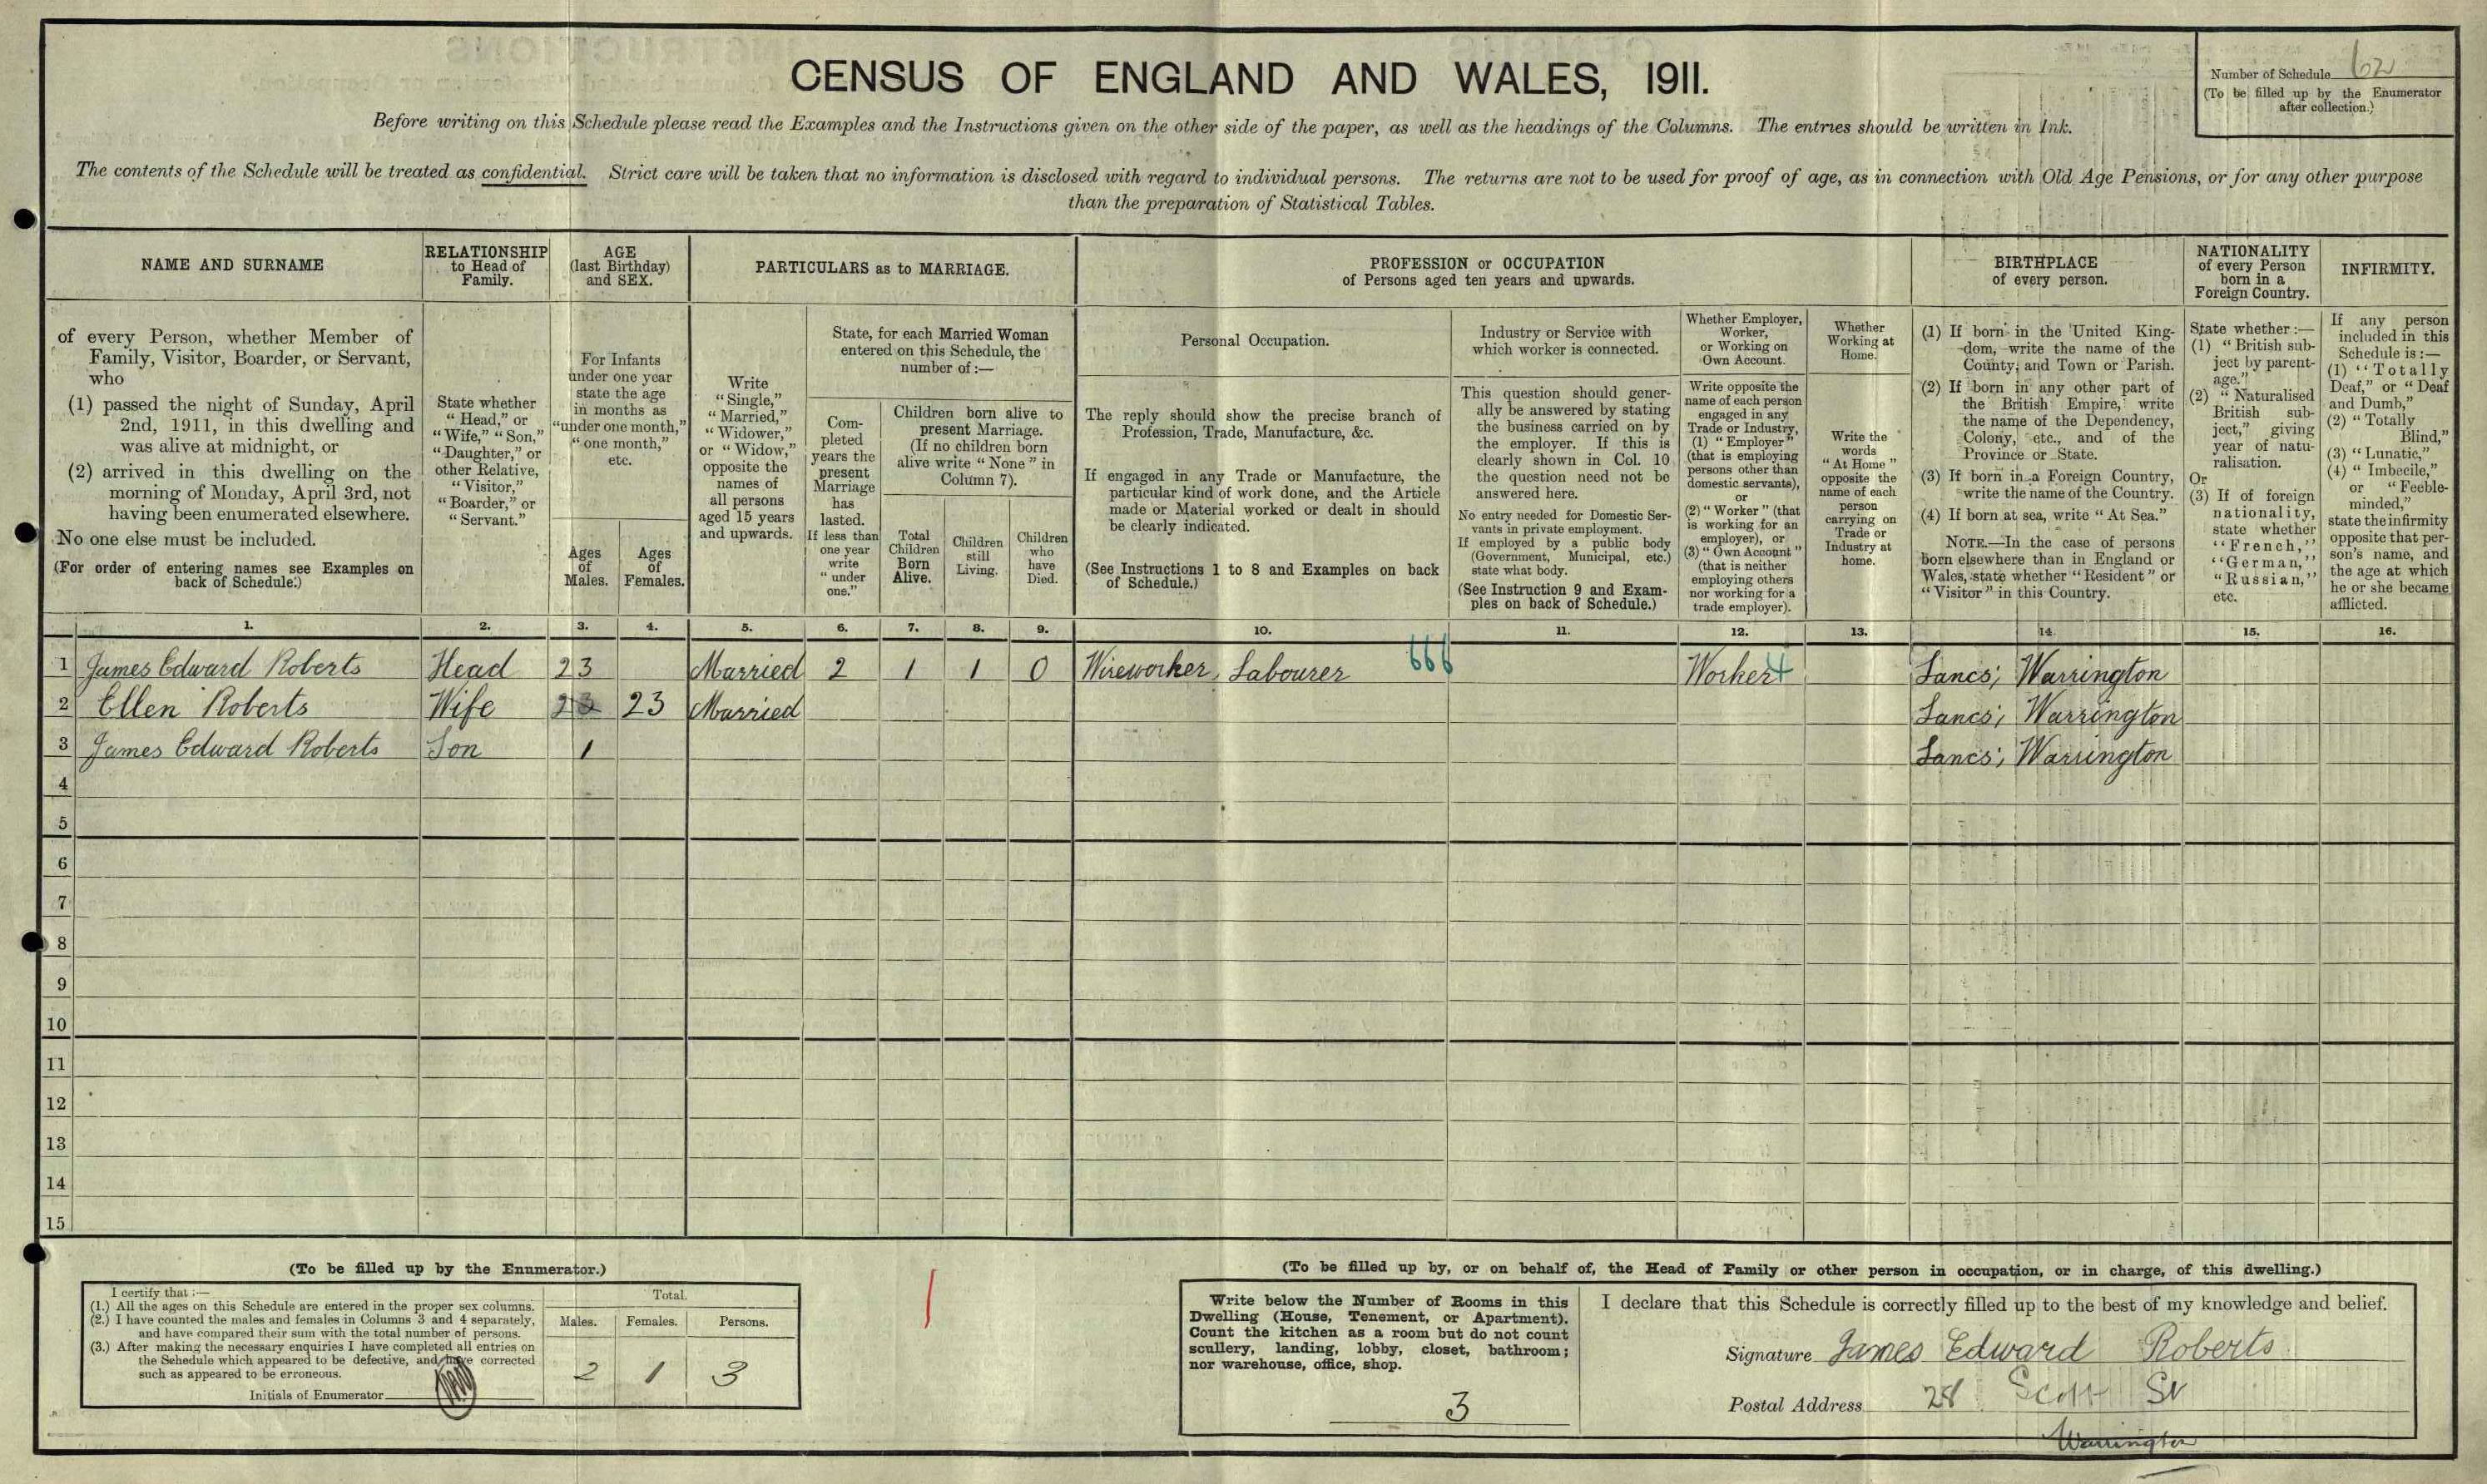 CENSUS OF ENGLAND AND WALES, 1911.
Number of Schedule 62
(To be filled up by the Enumerator
after collection.)
Before writing on this Schedule please read the Examples and the Instructions given on the other side of the paper, as well as the headings of the Columns. The entries should be written in Ink.
The contents of the Schedule will be treated as confidential. Strict care will be taken that no information is disclosed with regard to individual persons. The returns are not to be used for proof of age, as in connection with Old Age Pensions, or for any other purpose
than the preparation of Statistical Tables.
NAME AND SURNAME
of every Person, whether Member of
Family, Visitor, Boarder, or Servant,
who
(1) passed the night of Sunday, April
2nd, 1911, in this dwelling and
was alive at midnight, or
(2) arrived in this dwelling on the
morning of Monday, April 3rd, not
having been enumerated elsewhere.
No one else must be included.
(For order of entering names see Examples on
back of Schedule.)
RELATIONSHIP
to Head of
Family.
State whether
"Head," or
"Wife," "Son,"
"Daughter," or
other Relative,
"Visitor,"
"Boarder," or
"Servant."
AGE
(last Birthday)
and SEX.
For Infants
under one year
state the age
in months as
"under one month,"
"one month,"
etc.
Ages
of
Males.
Ages
of
Females.
PARTICULARS as to MARRIAGE.
Write
"Single,"
"Married,"
"Widower,"
or "Widow,"
opposite the
names of
all persons
aged 15 years
and upwards.
State, for each Married Woman
entered on this Schedule, the
number of :—
Com-
pleted
years the
present
Marriage
has
lasted.
If less than
one year
write
"under
one."
Children born alive to
present Marriage.
(If no children born
alive write "None" in
Column 7).
Total
Children
Born
Alive.
Children
still
Living.
Children
who
have
Died.
PROFESSION or OCCUPATION
of Persons aged ten years and upwards.
Personal Occupation.
The reply should show the precise branch of
Profession, Trade, Manufacture, &c.
If engaged in any Trade or Manufacture, the
particular kind of work done, and the Article
made or Material worked or dealt in should
be clearly indicated.
(See Instructions 1 to 8 and Examples on back
of Schedule.)
Industry or Service with
which worker is connected.
This question should gener-
ally be answered by stating
the business carried on by
the employer. If this is
clearly shown in Col. 10
the question need not be
answered here.
No entry needed for Domestic Ser-
vants in private employment.
If employed by a public body
(Government, Municipal, etc.)
state what body.
(See Instruction 9 and Exam-
ples on back of Schedule.)
Whether Employer,
Worker,
or Working on
Own Account.
Write opposite the
name of each person
engaged in any
Trade or Industry,
(1) "Employer"
(that is employing
persons other than
domestic servants),
or
(2) "Worker" (that
is working for an
employer), or
(3) "Own Account"
(that is neither
employing others
nor working for a
trade employer).
Whether
Working at
Home.
Write the
words
"At Home"
opposite the
name of each
person
carrying on
Trade or
Industry at
home.
BIRTHPLACE
of every person.
(1) If born in the United King-
dom, write the name of the
County, and Town or Parish.
(2) If born in any other part of
the British Empire, write
the name of the Dependency,
Colony, etc., and of the
Province or State.
(3) If born in a Foreign Country,
write the name of the Country.
(4) If born at sea, write "At Sea."
NOTE.—In the case of persons
born elsewhere than in England or
Wales, state whether "Resident" or
"Visitor" in this Country.
NATIONALITY
of every Person
born in a
Foreign Country.
State whether :—
(1) "British sub-
ject by parent-
age."
(2) "Naturalised
British sub-
ject," giving
year of natu-
ralisation.
Or
(3) If of foreign
nationality,
state whether
"French,"
"German,"
"Russian,"
etc.
INFIRMITY.
If any person
included in this
Schedule is :—
(1) "Totally
Deaf," or "Deaf
and Dumb,"
(2) "Totally
Blind,"
(3) "Lunatic,"
(4) "Imbecile,"
or "Feeble-
minded,"
state the infirmity
opposite that per-
son's name, and
the age at which
he or she became
afflicted.
1. 2. 3. 4. 5. 6. 7. 8. 9. 10. 11. 12. 13. 14. 15. 16.
1 James Edward Roberts Head 23 Married 2 1 1 0 Wireworker, Labourer 666 Worker Lancs; Warrington
2 Ellen Roberts Wife 23 23 Married Lancs; Warrington
3 James Edward Roberts Son 1 Lancs; Warrington
4
5
6
7
8
9
10
11
12
13
14
15
(To be filled up by the Enumerator.)
I certify that :—
(1.) All the ages on this Schedule are entered in the proper sex columns.
(2.) I have counted the males and females in Columns 3 and 4 separately,
and have compared their sum with the total number of persons.
(3.) After making the necessary enquiries I have completed all entries on
the Schedule which appeared to be defective, and have corrected
such as appeared to be erroneous.
Initials of Enumerator
Total.
Males. Females. Persons.
2 1 3
(To be filled up by, or on behalf of, the Head of Family or other person in occupation, or in charge, of this dwelling.)
Write below the Number of Rooms in this
Dwelling (House, Tenement, or Apartment).
Count the kitchen as a room but do not count
scullery, landing, lobby, closet, bathroom;
nor warehouse, office, shop.
3
I declare that this Schedule is correctly filled up to the best of my knowledge and belief.
Signature James Edward Roberts
Postal Address 28 Scott St
Warrington